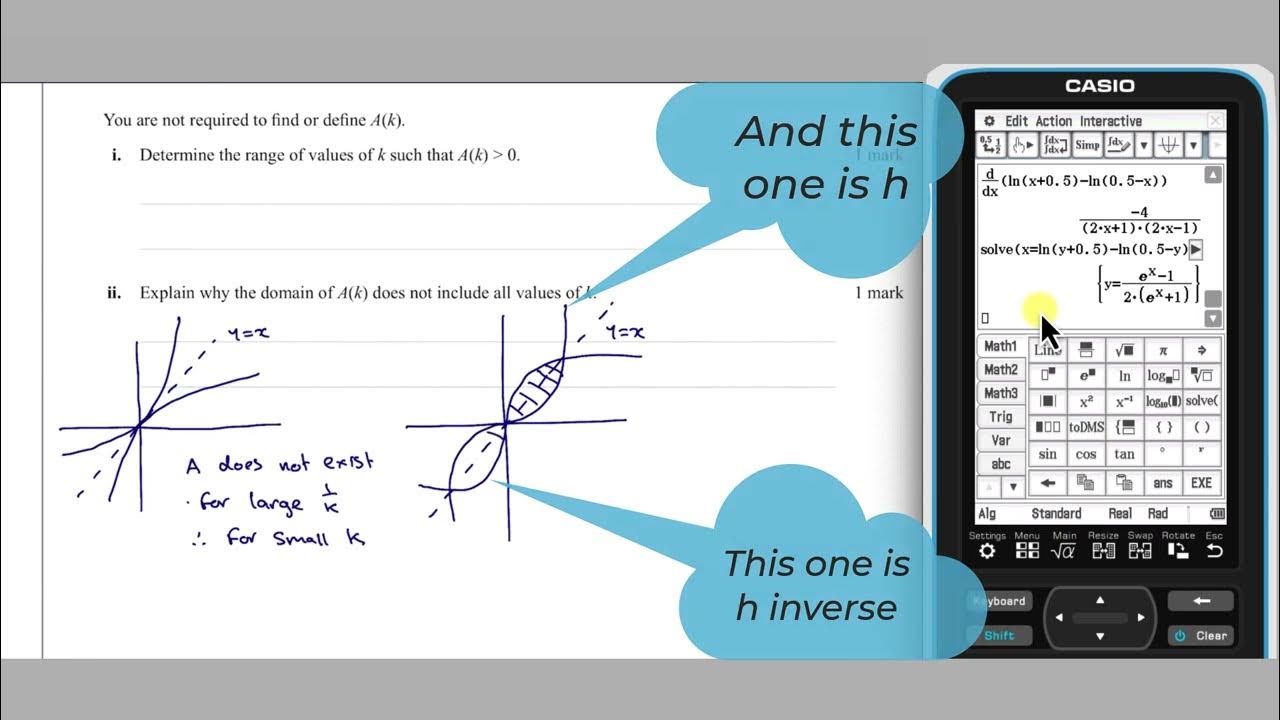 You are not required to find or define A(k).
i. Determine the range of values of k such that A(k) > 0.
1 mark
And this
one is h
ii. Explain why the domain of A(k) does not include all values of k.
1 mark
y=x
y=x
A does not exist
· for large 1/k
∴ for small k
This one is
h inverse
CASIO
Edit Action Interactive
Simp
d/dx(ln(x+0.5)-ln(0.5-x))
-4/((2·x+1)·(2·x-1))
solve(x=ln(y+0.5)-ln(0.5-y)
{y=(e^x-1)/(2·(e^x+1))}
Math1 Line √■ π ⇒
Math2 e^■ ln log_■□ ■√□
Math3 |■| x² x⁻¹ log₁₀(■) solve(
Trig toDMS { } ( )
Var sin cos tan ° r
abc
← ans EXE
Alg Standard Real Rad
Settings Menu Main Resize Swap Rotate Esc
√α
Keyboard
Shift Clear